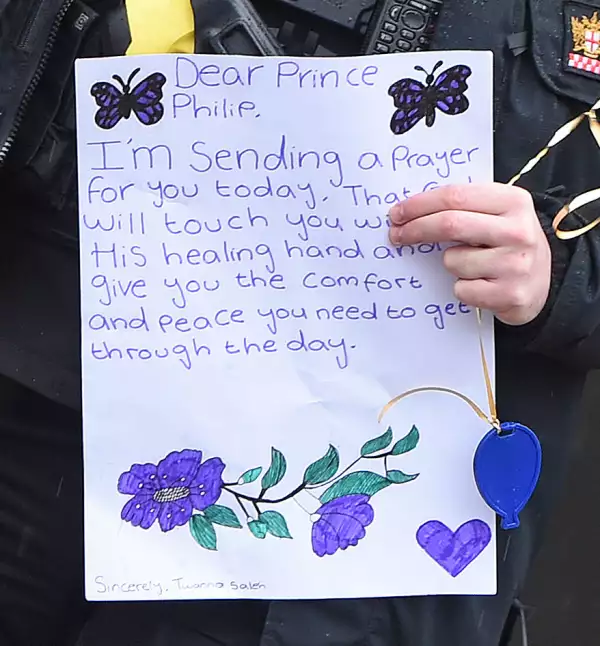 Dear Prince
Philip.
I'm Sending a Prayer
for you today. That
will touch you
His healing hand and
give you the comfort
and peace you need to get
through the day.
Sincerely, Twanna Saleh